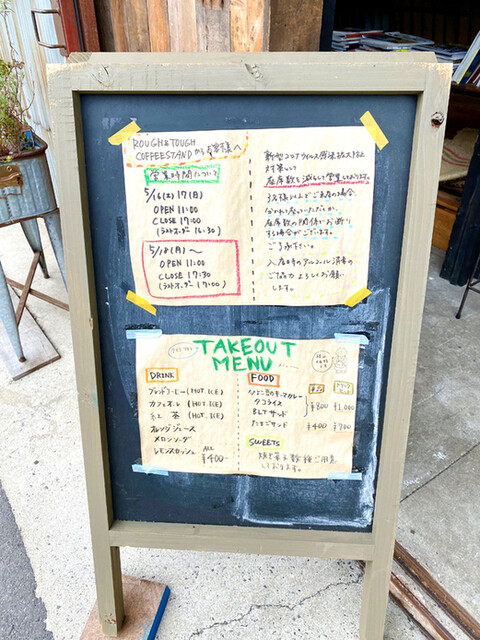 ROUGH & TOUGH
COFFEESTAND からお客様へ
営業時間について
5/16(土) 17(日)
OPEN 11:00
CLOSE 17:00
(ラストオーダー 16:30)
5/18(月)〜
OPEN 11:00
CLOSE 17:30
(ラストオーダー 17:00)
新型コロナウイルス感染拡大防止
対策として
座席数を減らして営業しております。
3名様以上でご来店の場合、
分かれて座っていただくか、
座席数の関係でお断り
する場合がございます。
ご了承下さい。
入店時のアルコール消毒の
ご協力よろしくお願い
します。
TAKEOUT
MENU
DRINK
ブレンドコーヒー (HOT. ICE)
カフェオレ (HOT. ICE)
紅茶 (HOT. ICE)
オレンジジュース
メロンソーダ
レモンスカッシュ
ALL
¥400-
FOOD
ひよこ豆のキーマカレー
タコライス
¥800 ¥1,000
BLTサンド
たまごサンド
¥400 ¥700
SWEETS
焼き菓子数種ご用意
しております。